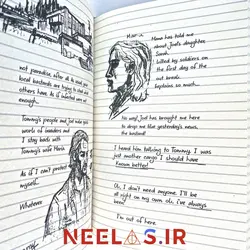 not paradise after all. It seems
local bastards are trying to steal what
others have. As if infected were not
enough.
Tommy's people and Joel make space
words of invaders and
I stay back with
Tommy's wife Maria.
As if I can't protect
myself.
Whatever
Maria
Maria has told me
about Joel's daughter.
Sarah.
Killed by soldiers on
the first day of the
out break.
Explains so much...
his way! Just has brought me here
to drops me like yesterday's news,
the bastard!
I heard him talking to Tommy. I was
just another cargo I should have
known better!
Oh, I don't need anyone. I'll be
all right on my own. Oh, I've always
been!
I'm out of here.
NEELAS.IR